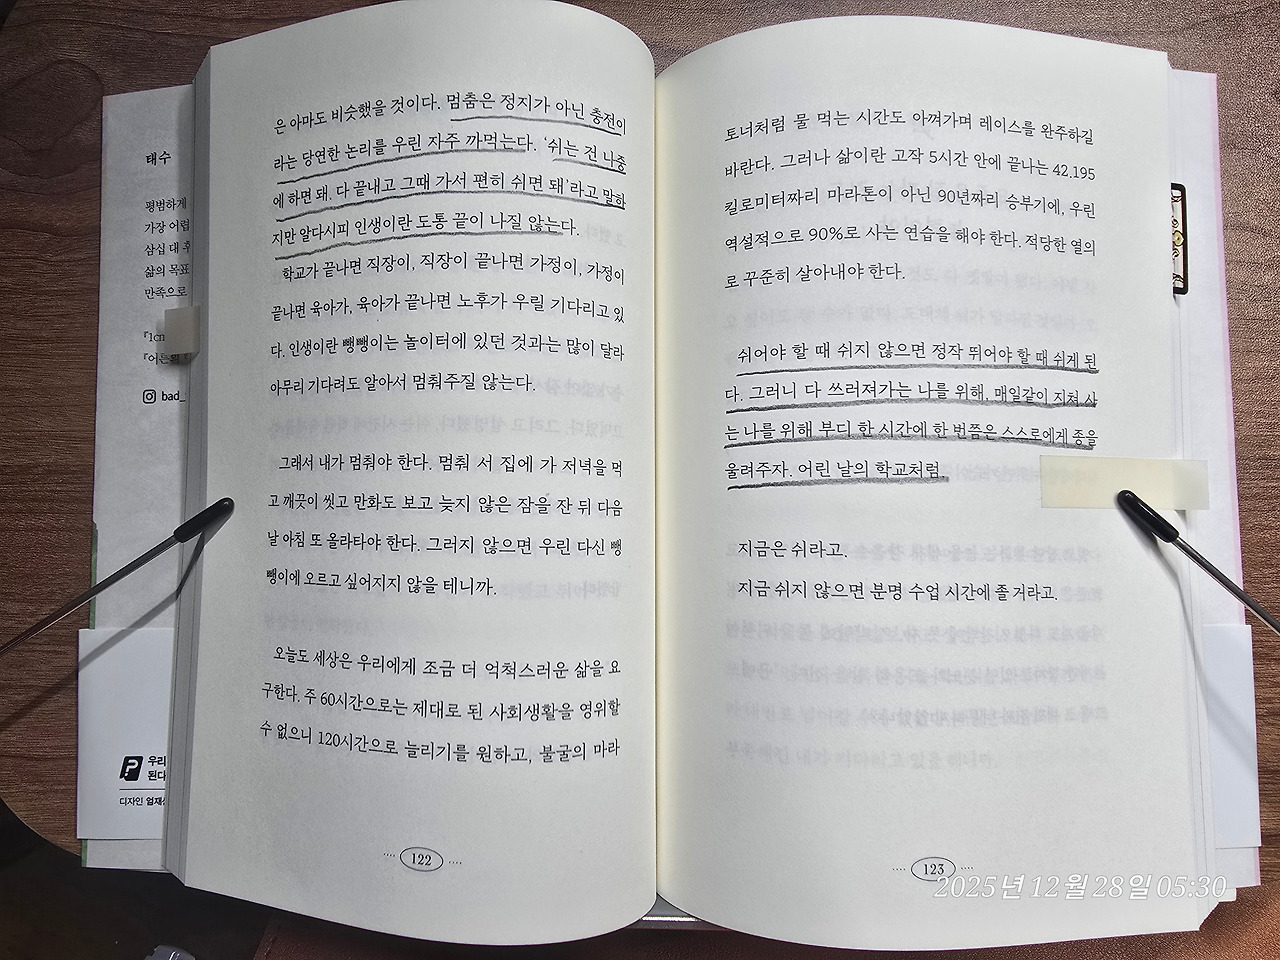 태수
평범하게
가장 어렵
삼십 대 후
삶의 목표
만족으로
『1cm
『어른의
bad_
우리
된다
디자인 엄재선
은 아마도 비슷했을 것이다. 멈춤은 정지가 아닌 충전이
라는 당연한 논리를 우린 자주 까먹는다. ‘쉬는 건 나중
에 하면 돼. 다 끝내고 그때 가서 편히 쉬면 돼’라고 말하
지만 알다시피 인생이란 도통 끝이 나질 않는다.
학교가 끝나면 직장이, 직장이 끝나면 가정이, 가정이
끝나면 육아가, 육아가 끝나면 노후가 우릴 기다리고 있
다. 인생이란 뺑뺑이는 놀이터에 있던 것과는 많이 달라
아무리 기다려도 알아서 멈춰주질 않는다.
그래서 내가 멈춰야 한다. 멈춰 서 집에 가 저녁을 먹
고 깨끗이 씻고 만화도 보고 늦지 않은 잠을 잔 뒤 다음
날 아침 또 올라타야 한다. 그러지 않으면 우린 다신 뺑
뺑이에 오르고 싶어지지 않을 테니까.
오늘도 세상은 우리에게 조금 더 억척스러운 삶을 요
구한다. 주 60시간으로는 제대로 된 사회생활을 영위할
수 없으니 120시간으로 늘리기를 원하고, 불굴의 마라
122
토너처럼 물 먹는 시간도 아껴가며 레이스를 완주하길
바란다. 그러나 삶이란 고작 5시간 안에 끝나는 42.195
킬로미터짜리 마라톤이 아닌 90년짜리 승부기에, 우린
역설적으로 90%로 사는 연습을 해야 한다. 적당한 열의
로 꾸준히 살아내야 한다.
쉬어야 할 때 쉬지 않으면 정작 뛰어야 할 때 쉬게 된
다. 그러니 다 쓰러져가는 나를 위해, 매일같이 지쳐 사
는 나를 위해 부디 한 시간에 한 번쯤은 스스로에게 종을
울려주자. 어린 날의 학교처럼.
지금은 쉬라고.
지금 쉬지 않으면 분명 수업 시간에 졸 거라고.
123
2025년 12월 28일 05:30